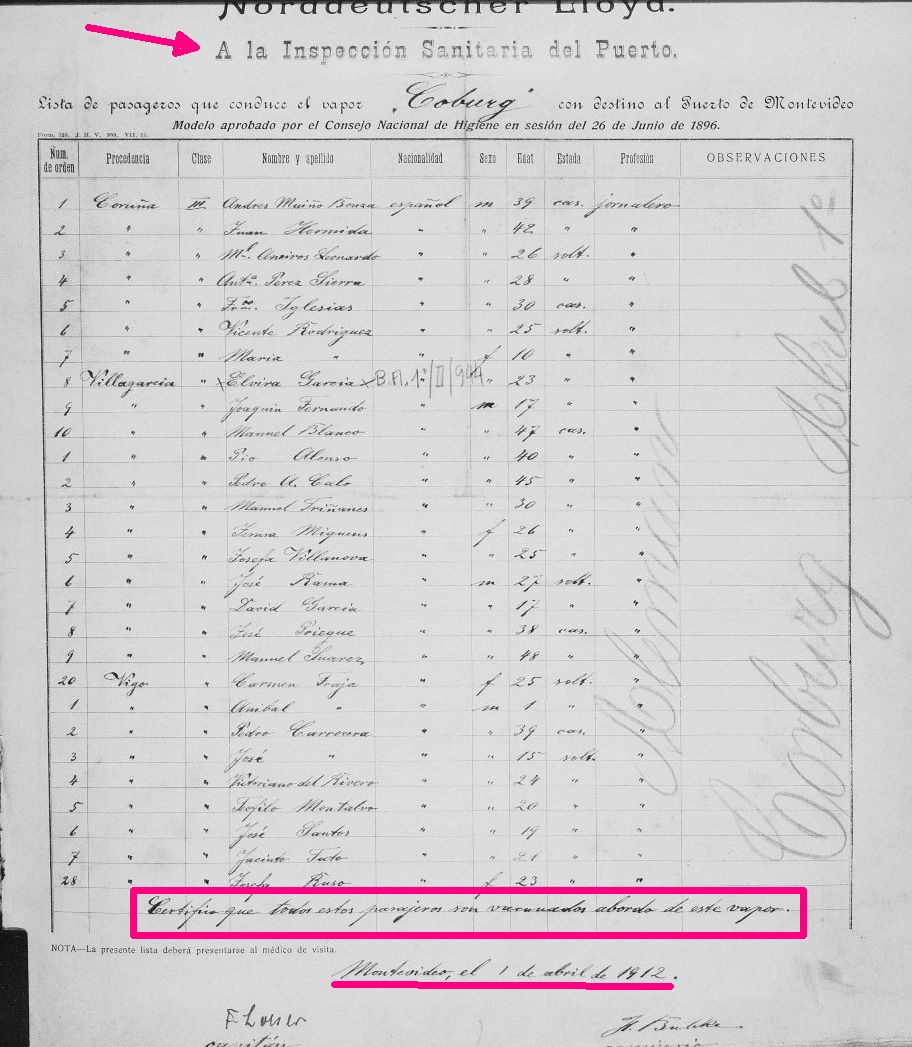 Norddeutscher Lloyd.
A la Inspección Sanitaria del Puerto.
Lista de pasageros que conduce el vapor "Coburg" con destino al Puerto de Montevideo
Modelo aprobado por el Consejo Nacional de Higiene en sesión del 26 de Junio de 1896.
Form. 325. J. H. V. 300. VII. 11.
Num. de orden Procedencia Clase Nombre y apellido Nacionalidad Sexo Edat Estada Profesión OBSERVACIONES
1 Coruña III Andres Muiño Bouza español m 39 cas. jornalero
2 " " Juan Hermida " " 42 " "
3 " " Ml. Aneiros Leonardo " " 26 solt. "
4 " " Anto. Perez Sierra " " 28 " "
5 " " Frco. Iglesias " " 30 cas. "
6 " " Vicente Rodriguez " " 25 solt. "
7 " " Maria " " f 10 " "
8 Villagarcia " Elvira Garcia B.A. 1º/II/944 " " 23 " "
9 " " Joaquin Fernando " m 17 " "
10 " " Manuel Blanco " " 47 cas. "
1 " " Pio Alonso " " 40 " "
2 " " Pedro A. Calo " " 45 " "
3 " " Manuel Triñanes " " 30 " "
4 " " Miguens " f 26 " "
5 " " Josefa Villanova " " 25 " "
6 " " José Rama " m 27 solt. "
7 " " David Garcia " " 17 " "
8 " " José Priegue " " 38 cas. "
9 " " Manuel Suarez " " 48 " "
20 Vigo " Carmen Fraja " f 25 solt. "
1 " " Anibal " " m 1 " "
2 " " Pedro Carrera " " 39 cas. "
3 " " José " " " 15 solt. "
4 " " Victoriano del Rivero " " 24 " "
5 " " Teofilo Montalvo " " 20 " "
6 " " José Santos " " 19 " "
7 " " Jacinto Tato " " 21 " "
28 " " Josefa Ruso " f 23 " "
Coburg Abril 1º
Certifico que todos estos pasajeros son vacunados abordo de este vapor.
NOTA—La presente lista deberá presentarse al médico de visita.
Montevideo, el 1 de abril de 1912.
capitán